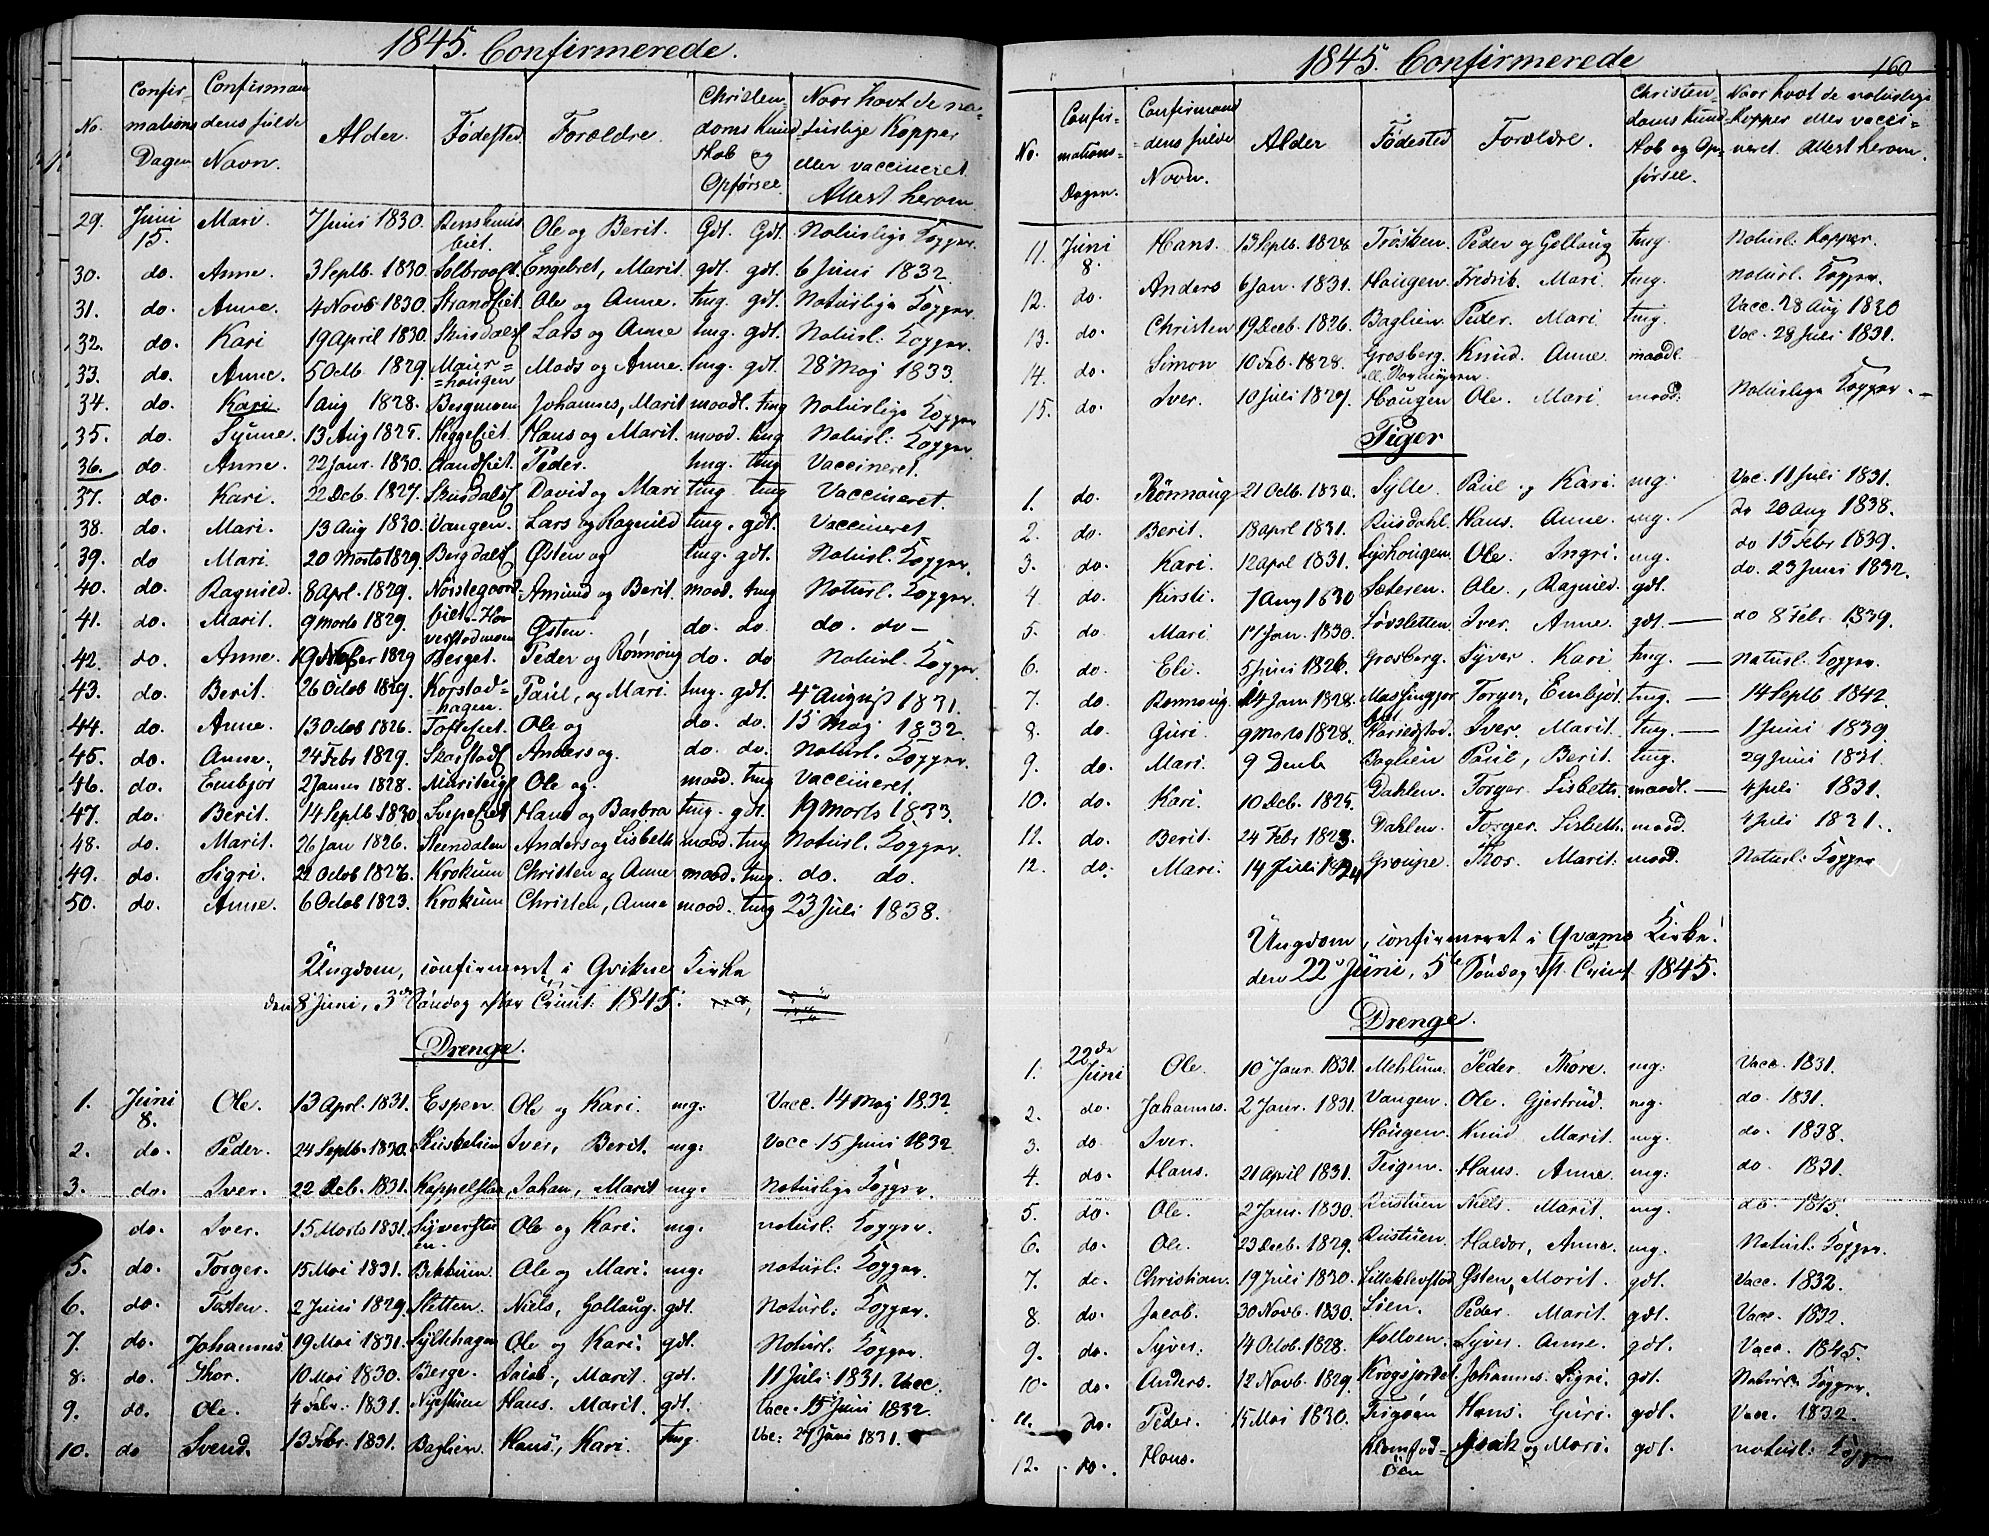 1845. Confirmerede.
No. Confirmations Dagen Confirmandens fulde Navn. Alder. Fødested Forældre. Christendoms Kundskab og Opførsel. Naar havt de naturlige Kopper eller vaccineret. Attest herom.
29. Juni 15. Mari. 7 Juni 1830. Ole og Berit. Gdt. Gdt. Naturlige Kopper.
30. do. Anne. 3 Septb. 1830. Engebret, Marit. gdt. gdt. 6 Juni 1832
31. do. Anne. 4 Novb. 1830. Ole og Anne. tmg. gdt. Naturlige Kopper
32. do. Kari 19 April 1830. Lars og Anne tmg. gdt. Naturl: Kopper.
33. do. Anne. 5 Octb. 1829. Mads og Anne. tmg. gdt. 28 Maj 1833.
34. do. Kari. 1 Aug 1828. Bergmoen Johannes, Marit maadl. tmg Naturlige Kopper
35. do. Synne. 13 Aug 1825. Heggeeiet. Hans og Marit. maad. tmg Naturl: Kopper
36. do. Anne. 22 Janr. 1830. Peder. tmg. tmg Vaccineret.
37. do. Kari. 22 Dcb. 1827. David og Mari tmg. tmg Vaccineret.
38. do. Mari. 13 Aug 1830. Vangen. Lars og Ragnild tmg. gdt. Vaccineret
39. do Mari. 20 Marts 1829. Østen og tmg. gdt. Naturl. Kopper.
40. do. Ragnild. 8 Apr. 1829. Amund og Berit. maad. tmg Naturl. Kopper.
41. do. Marit. 9 Marts 1829. Østen. do. do. do. do
42. do. Anne. 1829 Berget. Peder og Rønnoug do. do Naturl. Kopper
43. do. Berit. 26 Octob 1829. Korstadhagen. Paul, og Mari tmg. gdt. 4 August 1831.
44. do. Anne. 13 Octob 1826. Tofteeiet. Ole og do. do. 15 Maj 1832.
45. do. Anne. 24 Febr 1829. Anders og. do. do. Naturl. Kopper.
46. do. Embjør 2 Janr 1828. Ole og. maad. tmg Vaccineret.
47. do. Berit. 14 Septb 1830 Hans og Barbra tmg. gdt. 19 Marts 1833.
48. do. Marit. 26 Jan 1826. Steendalen Anders og Lisbeth maad. tmg Naturl. Kopper.
49. do. Sigri. 22 Octob 1826. Krokum Christen og Anne maad. tmg. do. do.
50. do. Anne. 6 Octob 1823. Krokum Christen, Anne maad. tmg 23 Juli 1838.
Ungdom, confirmeret i Qvikne Kirke
den 8 Juni, 3die Søndag efter Trinit: 1845.
Drenge.
1. Juni 8. Ole. 13 Apr. 1831. Espen Ole og Kari. mg: Vacc. 14 Maj 1832
2. do. Peder. 24 Septb. 1830. Iver, Berit. mg: Vacc 15 Juni 1832.
3. do. Iver. 22 1831. Johan, Marit mg: Naturlige Kopper.
do. Iver. 15 Marts 1831. Ole og Kari: mg: naturl: Kopper.
5. do. Torger. 15 Mai 1831. Ole og Mari: mg: naturl: Kopper.
6. do. Tosten. 2 Juni 1829. Sletten. Niels, Gollaug. gdt. Naturl: Kopper.
7. do. Johannes 19 Mai 1831. Syltehagen Ole og Kari: gdt. Naturl: Kopper.
8. do. Thor. 10 Mai 1830. Berge. Jacob, Marit. gdt. 11 Juli 1831. Vacc.
9. do. Ole. 4 Febr. 1831. Hans. Marit. gdt. Vacc. 15 Juni 1832.
10. do Svend. 13 Febr. 1831. Baglien. Hans, Kari. tmg. Vac: 29 Juni 1831.
1845. Confirmerede 160
No. Confirmations-Dagen. Confirmandens fulde Navn. Alder Fødested Forældre. Christendoms Kundskab og Opførsel. Naar havt de naturlige Kopper eller vaccineret. Attest herom.
11. Juni 8. Hans. 13 Septb. 1828 Peder og Gollaug tmg. Naturl: Kopper.
12. do. Anders 6 Jan. 1831. Haugen. Fredrik. Mari. tmg. naturl. Kopper.
13. do Christen 19 Decb. 1826. Baglien. Peder. Mari tmg. Vacc. 28 Aug 1830
14. do. Simon 10 Feb. 1828. Grosberg. Knud. Anne. maadl. Vac. 28 Juli 1831.
15. do. Iver. 10 Juli 1827. Haugen Ole. Mari maad. Naturlige Kopper.
Piger
1. do. Rønnaug 21 Octb. 1830. Sylte. Paul og Kari. mg. Vac. 11 Juli 1831.
2. do. Berit. 18 apr. 1831. Hans. Anne. mg. do 20 Aug 1838.
3. do. Kari. 12 apr. 1831. Ole. Ingri. mg. do 15 Febr 1839.
4 do. Kirsti. 7 Aug 1830 Sæteren. Ole, Ragnild. gdt. do. 23 Juni 1832.
5. do. Mari 17 Jan. 1830. Iver. Anne. gdt. do 8 Febr. 1839.
6. do. Eli. 5 Juni 1826. Grosberg. Syver. Kari tmg. Naturl. Kopper.
7. do. Rønnoug. 24 Janr 1828. Torger, Embjør. tmg. 14 Septb 1842.
8. do. Guri. 9 Marts 1828. Iver. Marit. tmg. 1 Juni 1839.
9. do. Mari 9 Baglien Paul, Berit. tmg. 29 Juni 1831.
10. do. Kari. 10 Dcb. 1825. Dahlen. Torger. Lisbeth. maadl. 4 Juli 1831.
11. do. Berit. 24 Febr 1823. Dahlen. Torger. Lisbeth. maad. 4 Juli 1831.
12. do. Mari. 14 Juli 1824 Groupe Thor. Marit. maad. Naturl: Kopper
Ungdom, confirmeret i Qvams Kirke.
den 22 Juni, 5te Søndag eft. Trinit. 1845.
Drenge.
1. 22de Juni Ole. 10 Janr. 1831. Mehlum. Peder Thore. mg: Vacc. 1831.
2. do. Johannes. 2 Janr. 1831. Vangen. Ole. Gjertrud. mg. do. 1831.
3. do. Iver. Haugen. Knud Marit. mg. do. 1838.
4. do. Hans. 21 April 1831. Hans. Anne. mg: do. 1831.
5. do. Ole. 2 Janr. 1830. Niels. Marit. mg. do.
6. do. Ole. 23 Decb. 1829. Rustuen Haldor, Anne. mg. Naturl: Kopper.
7. do. Christian. 19 Juli 1830. Østen, Marit. gdt. Vacc. 1832.
8. do. Jacob. 30 Novb. 1830. Lien. Peder. Marit. gdt. Vacc. 1832.
9. do. Syver. 14 Octob. 1828. Syver. Anne. gdt. Vacc. 1845.
10. do. Anders. 12 Novb. 1829. Krogsjordet Johannes. Sigri. gdt. Natur. Kopper.
11. do. Peder. 15 Mai 1830. Hans. Guri. gdt. Vacc. 1832.
12. do. Hans. Isaak og Mari. gdt. naturl: Kopper